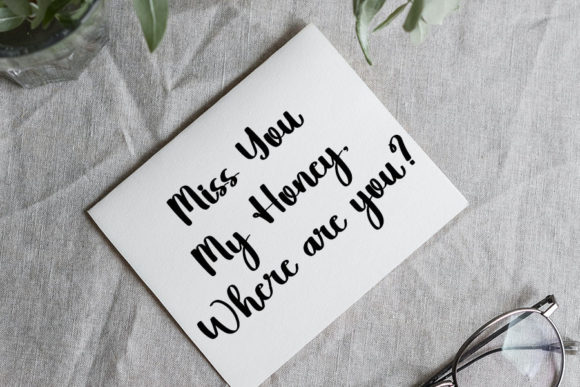 Miss You
My Honey,
Where are you?